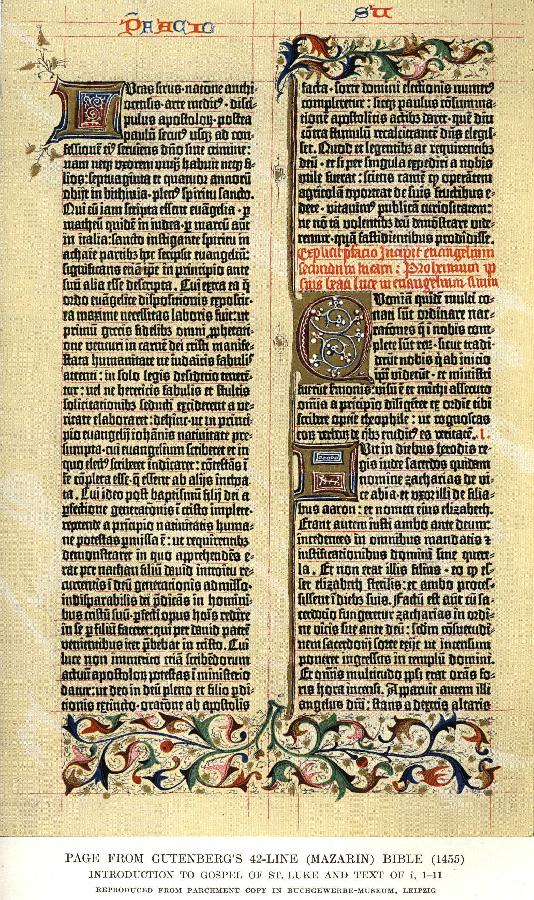 PRACIO
SU
Lucas sirus· natione anthi=
ocensis· arte medic9· disci=
pulus apostoloꝝ· postea
paulū secut9 usqꝫ ad con=
fessionē ei9 serviens dño sine crimine:
nam neqꝫ uxorem unqꝫ habuit neqꝫ fi=
lios: septuaginta et quatuor annorū
obijt in bithinia· plen9 spiritu sancto.
Qui cū iam scripta essent euāgelia· ꝑ
matheū quidē in iudea· ꝑ marcū aūt
in italia: sancto instigante spiritu in
achaie partibꝫ hoc scripsit euangeliū:
significans etiā ipē in principio ante
suū alia esse descripta. Cui extra ea q̄
ordo euāgelice dispositionis exposcit·
ea maxime necessitas laboris fuit: ut
primū grecis fidelibꝫ omni ꝓphetati=
one venturi in carnē dei cristi manife=
stata humanitate ne iudaicis fabulis
attenti: in solo legis desiderio teneren=
tur: vel ne hereticis fabulis et stultis
solicitationibꝫ seducti exciderent a ve=
ritate elaboraret: dehinc· ut in princi=
pio euangelij iohānis nativitate pre=
sumpta· cui euangelium scriberet et in
quo elect9 scriberet indicaret: cōtestās ī
se cōpleta esse· q̄ essent ab alijs incepta
ta. Cui ideo post baptismū filij dei a
ꝑfectione generationis ī cristo implete·
repetende a principio nativitatis huma=
ne potestas ꝑmissa ē: ut requirentibꝫ
demonstraret in quo apprehendēs e=
rat per nathan filiū david introitu re=
currentis ī deū generationis admisso·
indisparabilis dei ꝑdicās in homini=
bus cristū suū· ꝑfecti opus hoīs redire
in se ꝑ filiū faceret: qui per david patrē
venientibus iter p̄bebat in cristo. Cui
luce non immerito etiā scribēdorum
actuū apostoloꝝ potestas ī ministerio
datur: ut deo in deū pleno et filio ꝓdi=
tionis extincto· oratione ab apostolis
facta· sorte domini electionis numer9
compleretur: sicqꝫ paulus cōsumma=
tionē apostolicis actibꝫ daret· quē diu
cōtra stimulū recalcitrantē dñs elegis=
set. Quod et legentibꝫ ac requirentibꝫ
deū· et si per singula expediri a nobis
utile fuerat: sciens tamē ꝙ operātem
agricolā oporteat de suis fructibus e=
dere· vitavim9 publicā curiositatem:
ne nō tā volentibꝫ deū demōstrare vide=
remur· quā fastidientibus prodidisse.
Explicit pfacio Incipit euangelium
secundum lucam: Prohemium ip
sius beati luce in euangelium suum
Quoniā quidē multi co=
nati sūt ordinare nar=
rationes q̄ ī nobis com=
plete sūt reꝝ· sicut tradi=
derūt nobis q̄ ab inicio
ipī viderūt· et ministri
fuerūt ẜmonis: visū ē et michi assecuto
omīa a prīcipio diligēter ex ordīe tibi
scribere optīe theophile: ut cognoscas
eoꝝ verboꝝ de qibꝫ erudit9 es veritatē. I.
Fuit in diebus herodis re=
gis iude sacerdos quidam
nomine zacharias de vi=
ce abia· et uxor illi de filia=
bus aaron: et nomen eius elizabeth.
Erant autem iusti ambo ante deum:
incedentes in omnibus mandatis ⁊
iustificationibus domini sine quere=
la. Et non erat illis filius· eo ꝙ es=
set elizabeth sterilis: et ambo proces=
sissent ī diebꝫ suis. Factū est aūt cū sa=
cerdotio fungeretur zacharias in ordi=
ne vicis sue ante deū: scdm cōsuetudi=
nem sacerdotij sorte exijt ut incensum
poneret ingressus in templū domini.
Et omīs multitudo ppłi erat orās fo=
ris hora incensi. Apparuit autem illi
angelus dñi: stans a dextris altaris
PAGE FROM GUTENBERG'S 42-LINE (MAZARIN) BIBLE (1455)
INTRODUCTION TO GOSPEL OF ST. LUKE AND TEXT OF i, 1–11
REPRODUCED FROM PARCHMENT COPY IN BUCHGEWERBE-MUSEUM, LEIPZIG